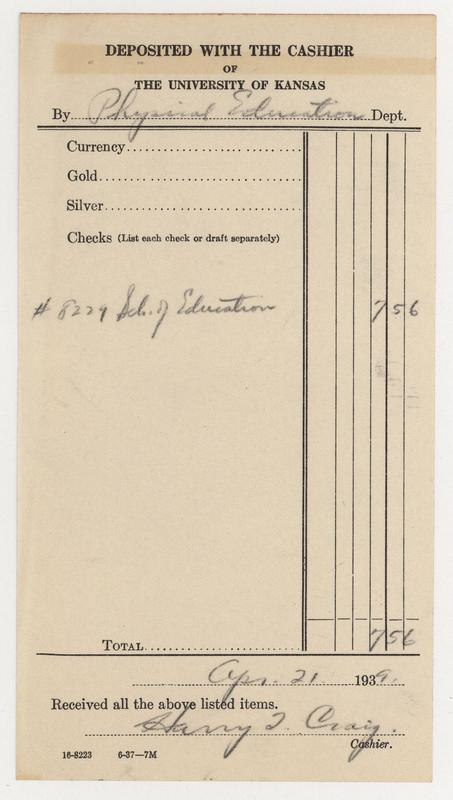 DEPOSITED WITH THE CASHIER
OF
THE UNIVERSITY OF KANSAS
By Physical Education Dept.
Currency
Gold
Silver
Checks (List each check or draft separately)
# 8229 Sch. of Education 7 56
TOTAL 7 56
Apr. 21 1939.
Received all the above listed items.
Harry I. Craig.
Cashier.
16-8223 6-37—7M